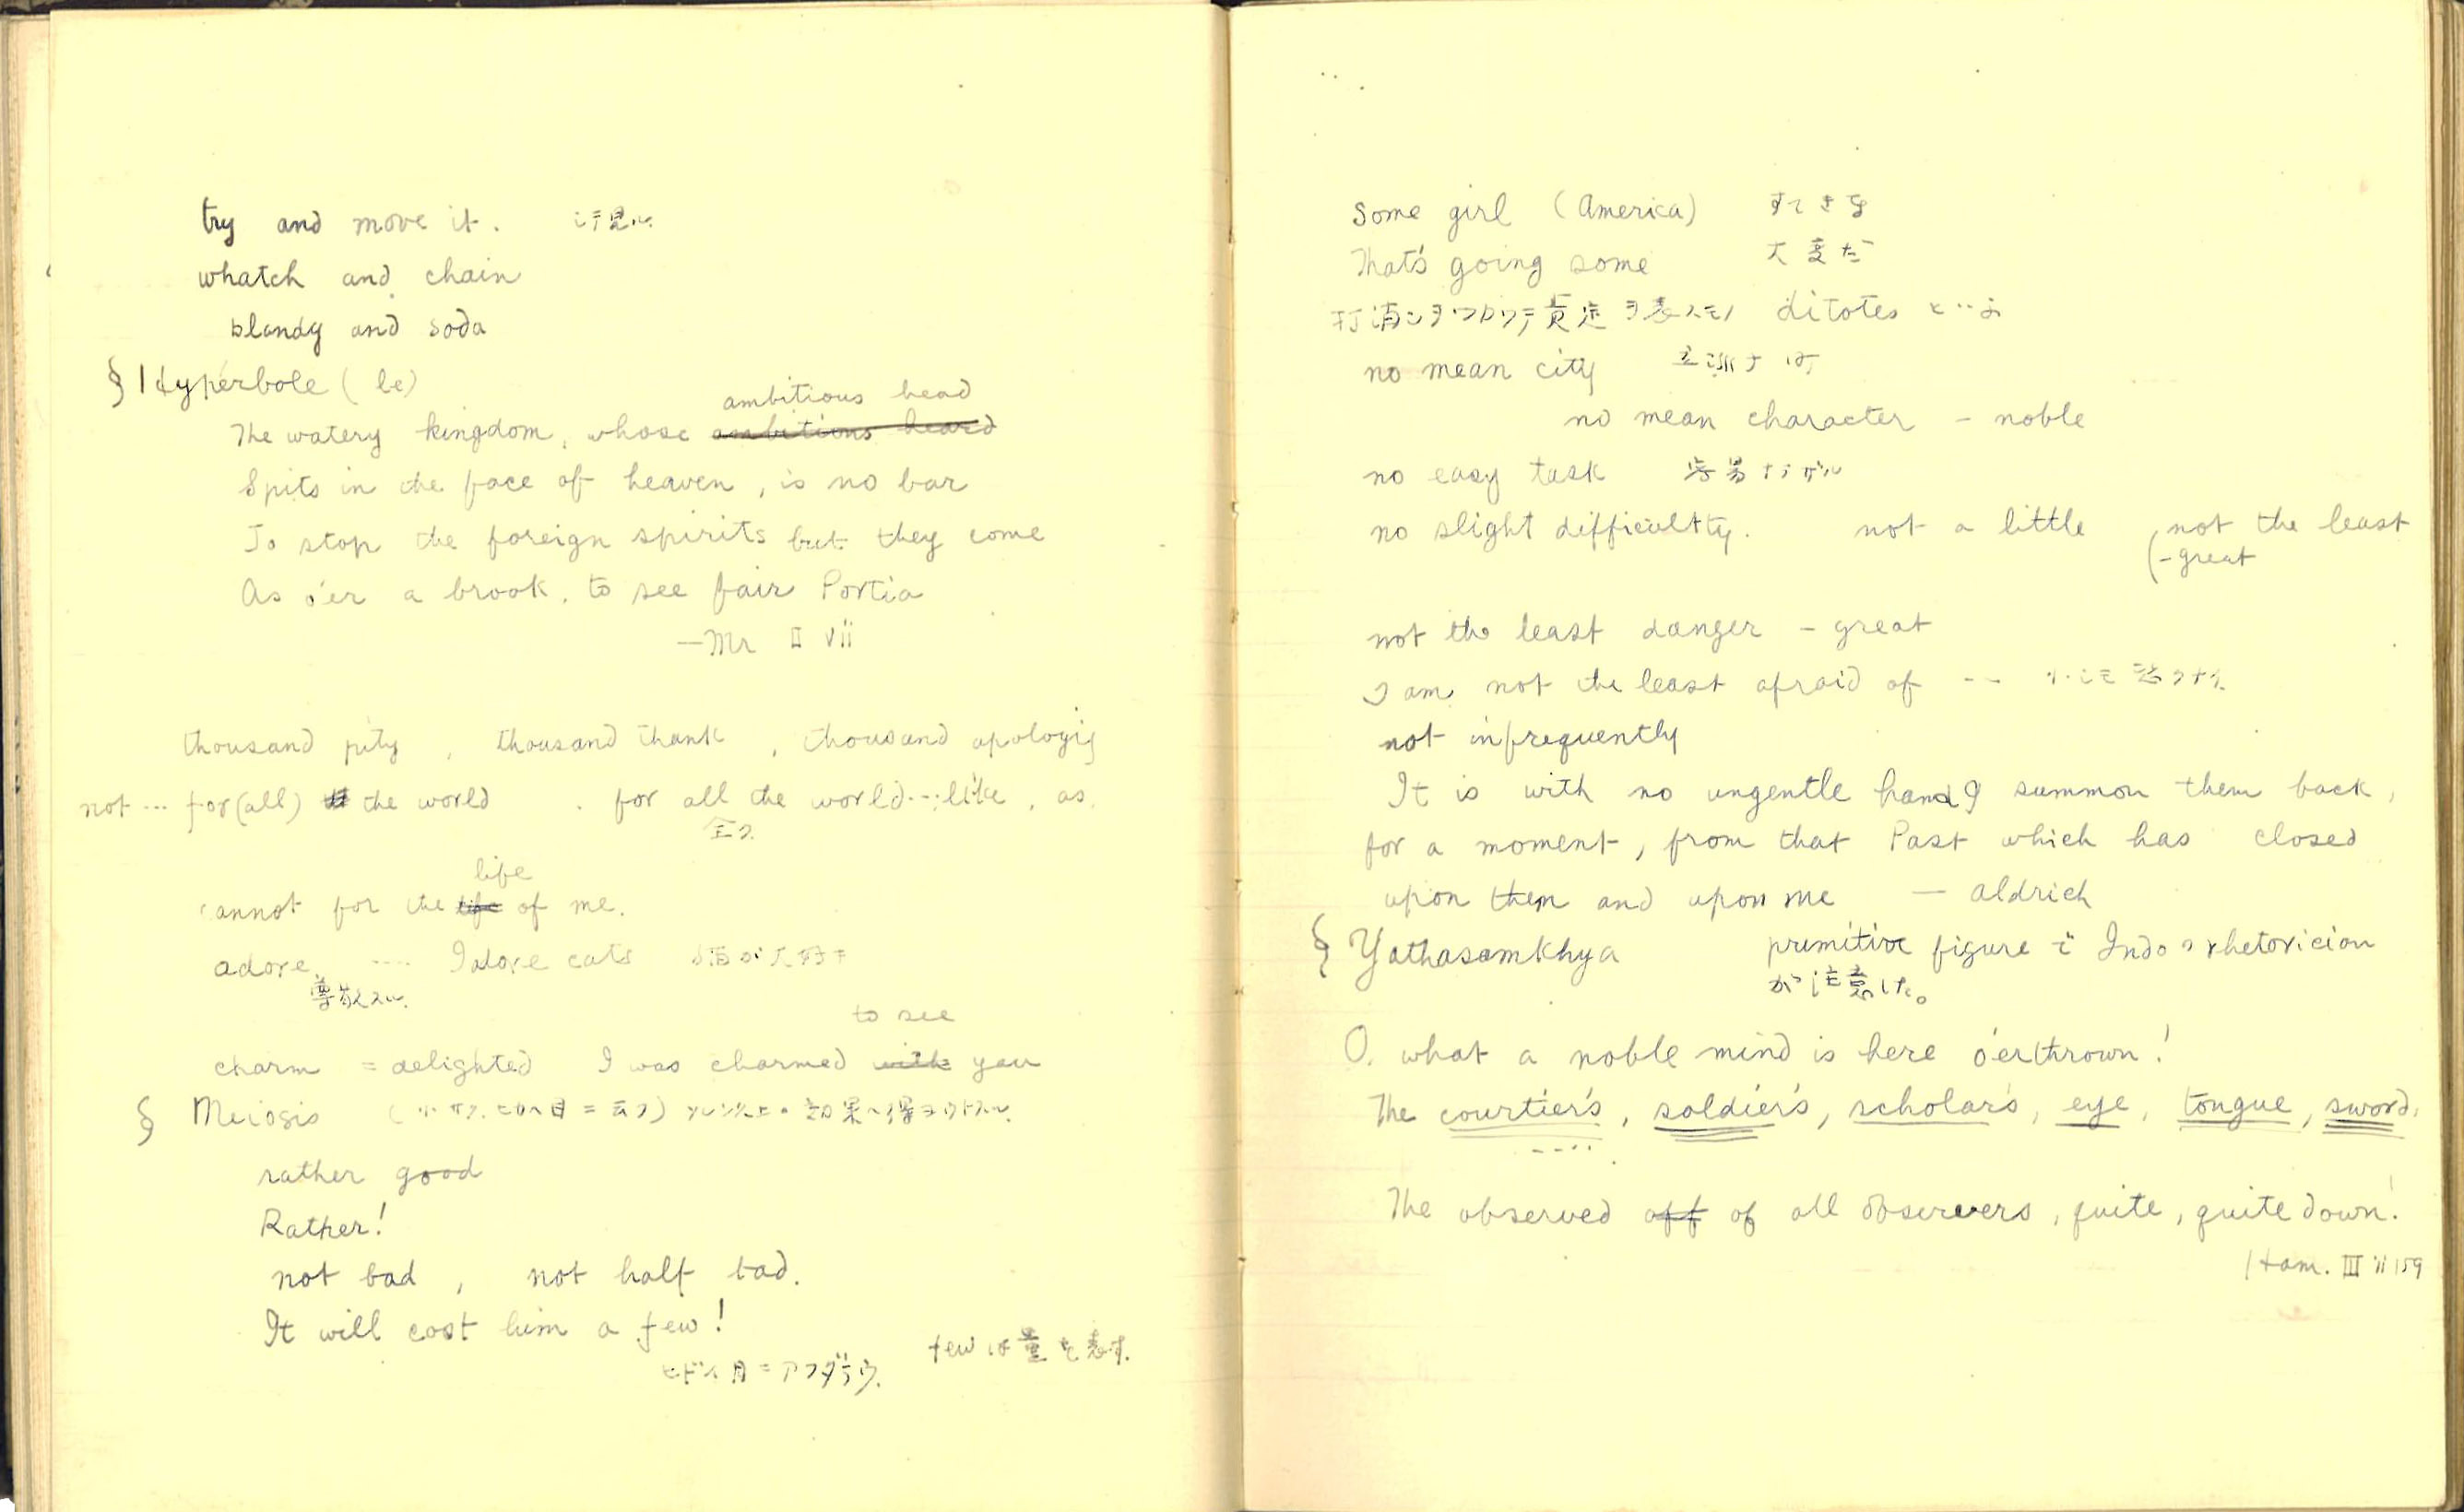 try and move it.
whatch and chain
blandy and soda
§ Hyperbole (le)
ambitious head
The watery kingdom, whose ambitious heard
Spits in the face of heaven, is no bar
To stop the foreign spirits but they come
As o'er a brook, to see fair Portia
—Mr II vii
thousand pity, thousand thank, thousand apologis
not ... for (all) the world . for all the world ... like, as.
全ク
life
cannot for the life of me.
adore .... I adore cats 猫が大好キ
尊敬スル.
to see
charm = delighted I was charmed with you
§ Meiosis
rather good
Rather!
not bad, not half bad.
It will cost him a few!
ヒドイ目ニアフダラウ. few は量を表す.
some girl (America) すてきな
That's going some 大変だ
打消シヲツカツテ肯定ヲ表スモノ ditotes といふ
no mean city 立派ナ町
no mean character – noble
no easy task 容易ナラザル
no slight difficultty. not a little (not the least
– great
not the least danger – great
I am not the least afraid of --
not infrequently
It is with no ungentle hand I summon them back,
for a moment, from that Past which has closed
upon them and upon me — aldrich
§ Yathasamkhya primitive figure で Indo の rhetorician
が注意した。
O. what a noble mind is here o'erthrown!
The courtier's, soldier's, scholar's, eye, tongue, sword.
The observed off of all observers, quite, quite down!
Ham. III ii 159